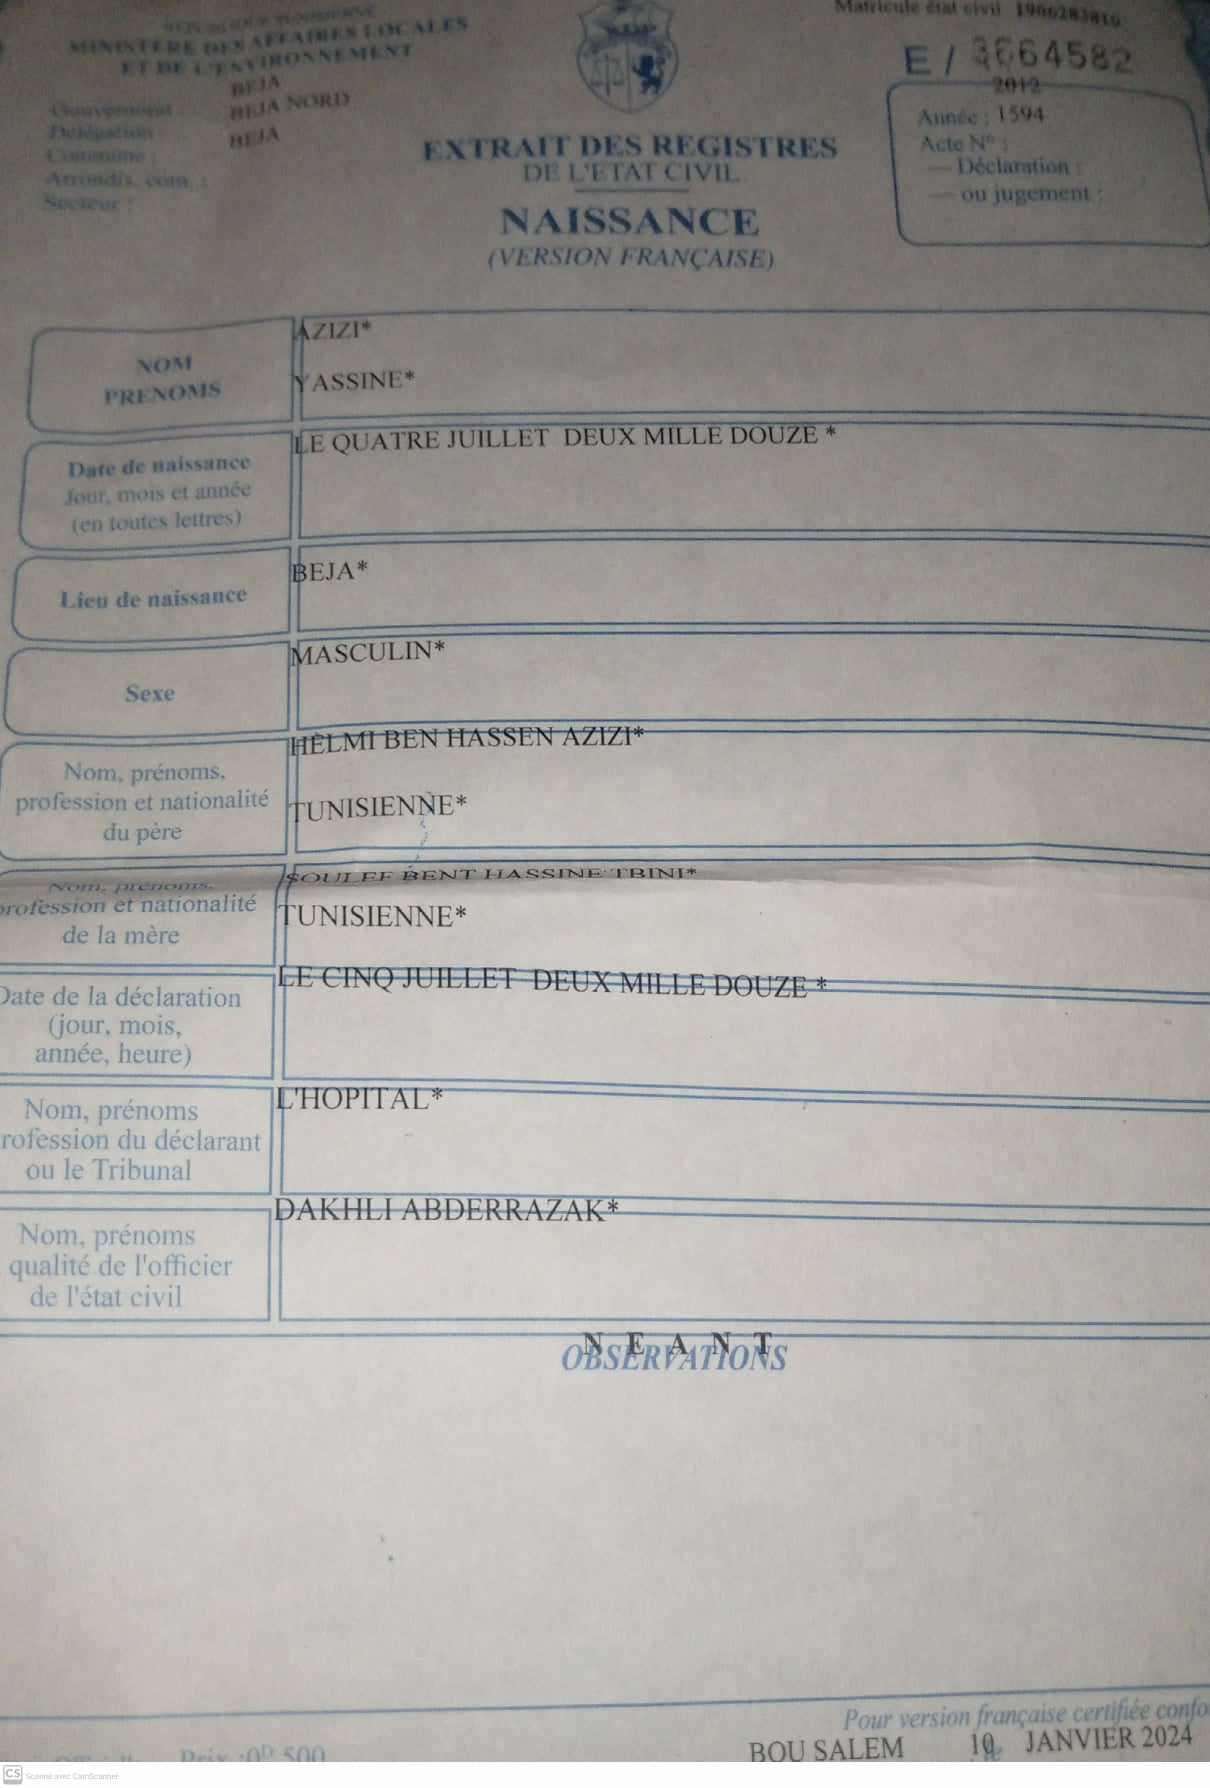 REPUBLIQUE TUNISIENNE
MINISTERE DES AFFAIRES LOCALES
ET DE L'ENVIRONNEMENT
Gouvernorat :
BEJA
Délégation :
BEJA NORD
Commune :
BEJA
Arrondis. com. :
Secteur :
Matricule état civil
E / 3664582
2012
Année : 1594
Acte N° :
— Déclaration :
— ou jugement :
EXTRAIT DES REGISTRES
DE L'ETAT CIVIL
NAISSANCE
(VERSION FRANÇAISE)
NOM
PRENOMS
AZIZI*
YASSINE*
Date de naissance
Jour, mois et année
(en toutes lettres)
LE QUATRE JUILLET DEUX MILLE DOUZE *
Lieu de naissance
BEJA*
Sexe
MASCULIN*
Nom, prénoms,
profession et nationalité
du père
HELMI BEN HASSEN AZIZI*
TUNISIENNE*
Nom, prénoms,
profession et nationalité
de la mère
SOULEF BENT HASSINE TBINI*
TUNISIENNE*
Date de la déclaration
(jour, mois,
année, heure)
LE CINQ JUILLET DEUX MILLE DOUZE *
Nom, prénoms
rofession du déclarant
ou le Tribunal
L'HOPITAL*
Nom, prénoms
qualité de l'officier
de l'état civil
DAKHLI ABDERRAZAK*
N E A N T
OBSERVATIONS
Pour version française certifiée confo
BOU SALEM 10 JANVIER 2024
Prix :0D 500
CS Scanné avec CamScanner